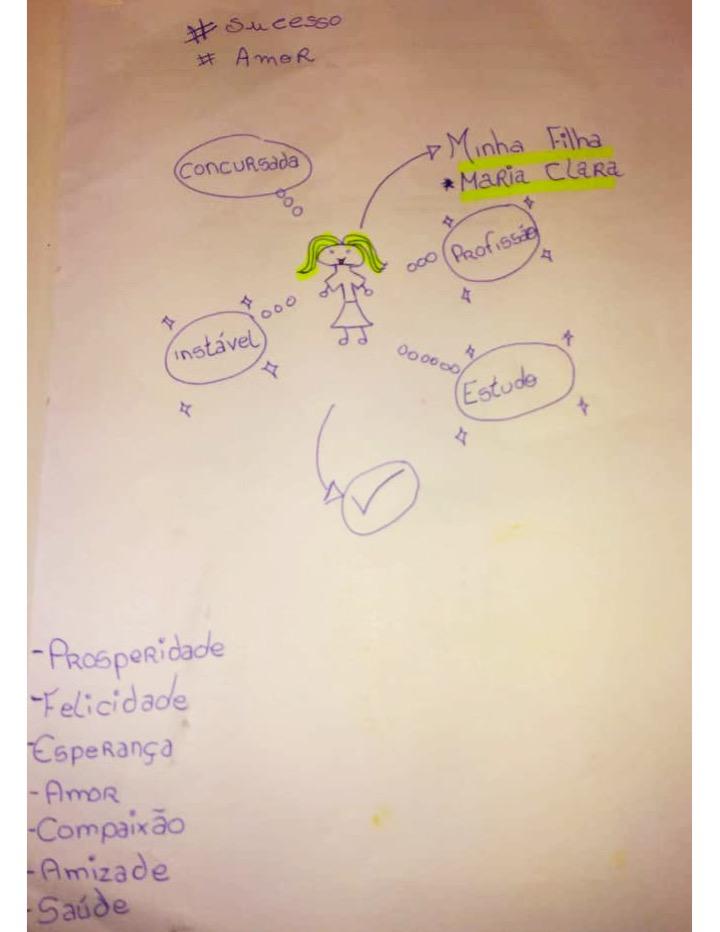 # Sucesso
# Amor
Concursada
Minha Filha
* Maria Clara
Profissão
instável
Estudo
-Prosperidade
-Felicidade
-Esperança
-Amor
-Compaixão
-Amizade
-Saúde